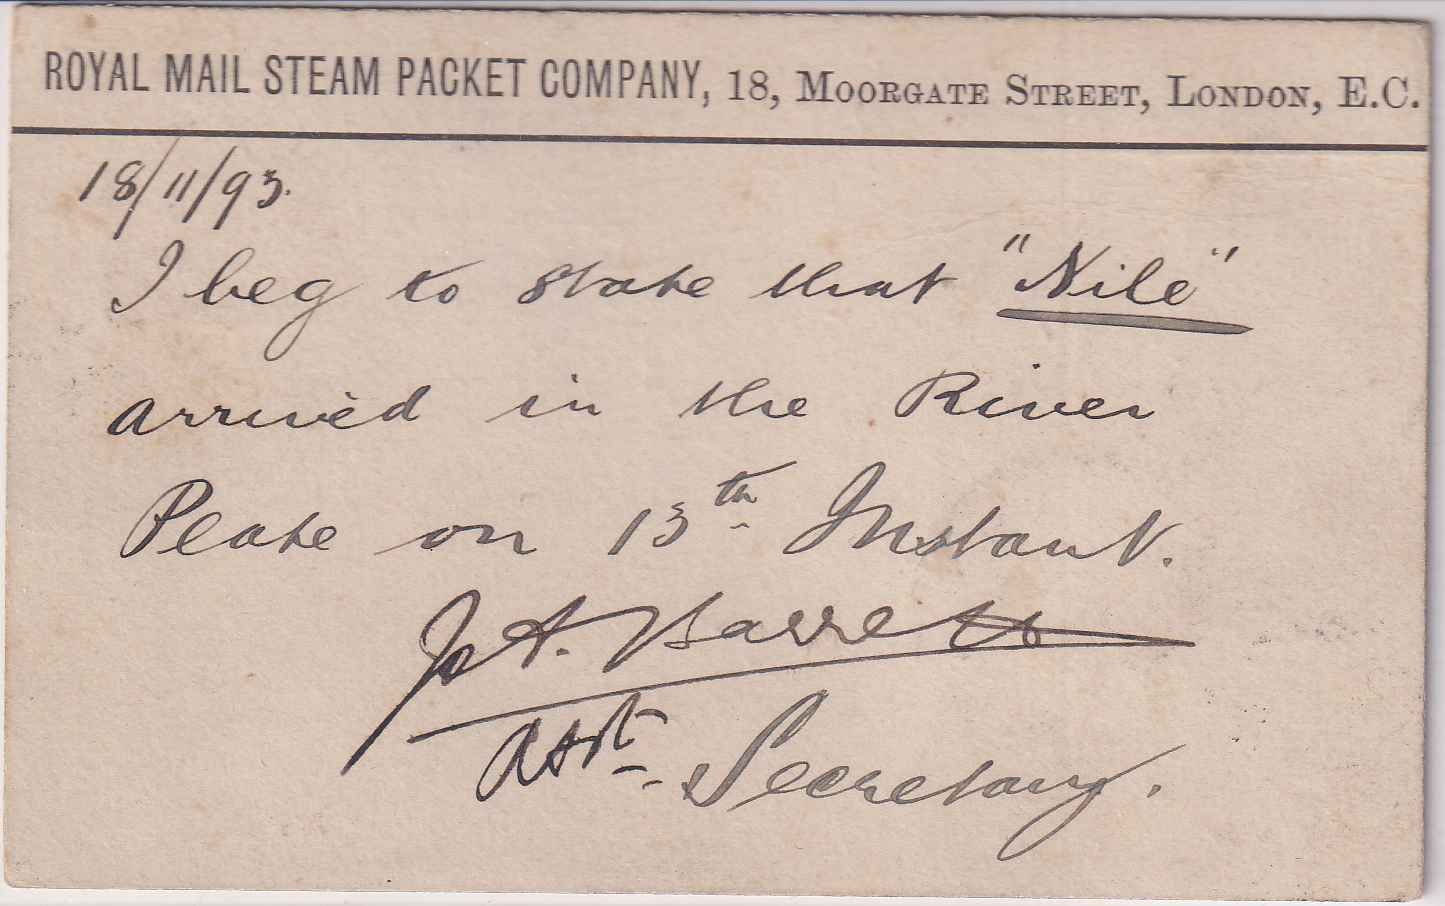 ROYAL MAIL STEAM PACKET COMPANY, 18, MOORGATE STREET, LONDON, E.C.
18/11/93.
I beg to state that "Nile"
arrived in the River
Plate on 13th Instant.
A. Barrett
Asst. Secretary.